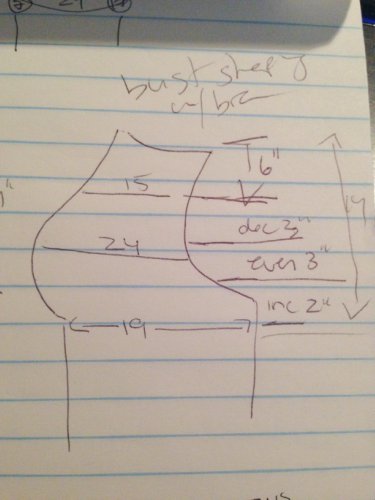 24
bust
w/bra
6"
15
14
dec 3"
24
even 3"
inc 2"
19